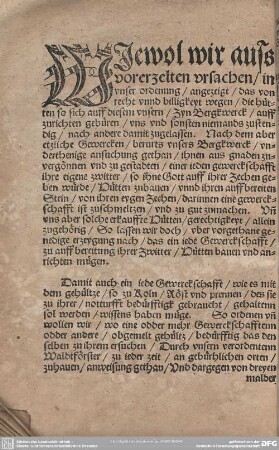 WIewol wir auſs
vorerzelten vrſachen / in
vnſer ordenung / angezeigt / das von
recht vnnd billigkeyt wegen / die hüt-
ten ſo ſich auff dieſem vnſern / Zyn Bergkwerck / auff
zurichten gebüren / vns vnd ſonſten niemands zuſten-
dig / nach andere damit zugelaſſen. Nach dem aber
etzliche Gewercken / berurts vnſers Bergkwerck / vn-
derthenige anſuchung gethan / ihnen aus gnaden zu-
vergönnen vnd zu geſtaden / einer ieden gewerckſchafft
ihre eigene zwitter / ſo ihne Gott auff ihrer Zechen ge-
ben würde / Hütten zubauen / vnnd ihren auffbereiten
Stein / von ihren eygen Zechen / darinnen eine gewerck-
ſchafft iſt zuſchmelzen / vnd zu gut zumachen. Vñ
vns aber ſolche erkauffte Hütten / gerechtigkeyt / allein
zugehörig / So laſſen wir doch / vber vorgethane ge-
nedige erzeygung nach / das ein iede Gewerckſchafft /
zu auff bereitung ihrer Zwitter / Hütten bauen vnd an-
richten mügen.
Damit auch ein iede Gewerckſchafft / wie es mit
dem gehültze / ſo zu Koln / Röſt vnd prennen / das ſie
zu ihrer / notturfft bedürfftigk gebraucht / gehalten
ſol werden / wiſſens haben müge. So ordenen vñ
wollen wir / wo eine odder mehr Gewerckſchafften
odder andere / obgemelt gehültz / bedürfftig das den
ſelben zu ihrem erſuchen / Durch vnſern verordenten
Waldtförſter / zu ieder zeit / an gebürlichen orten /
zuhauen / anweiſung gethan / Vnd dargegen von dreyen
malder